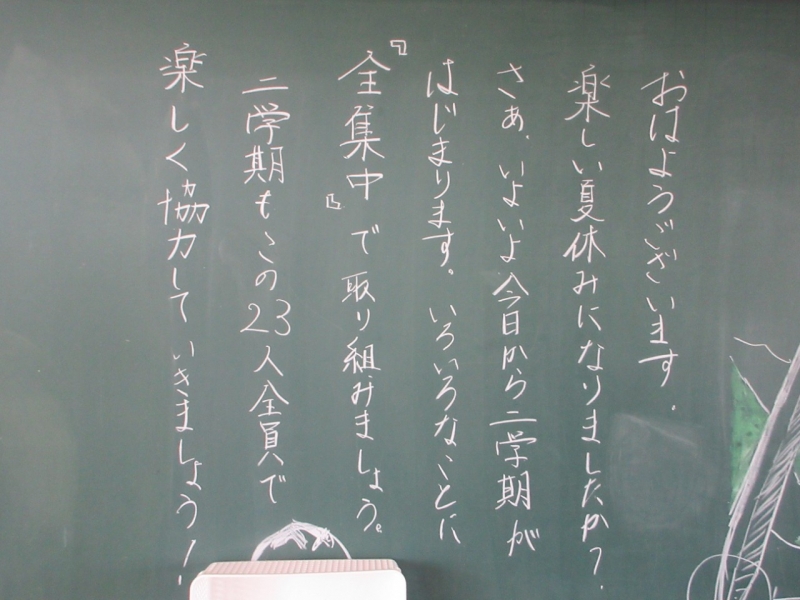 おはようございます.
楽しい夏休みになりましたか?.
さぁ、いよいよ今日から二学期が
はじまります。いろいろなことに
『全集中』で取り組みましょう。
二学期もこの23人全員で
楽しく協力していきましょう!